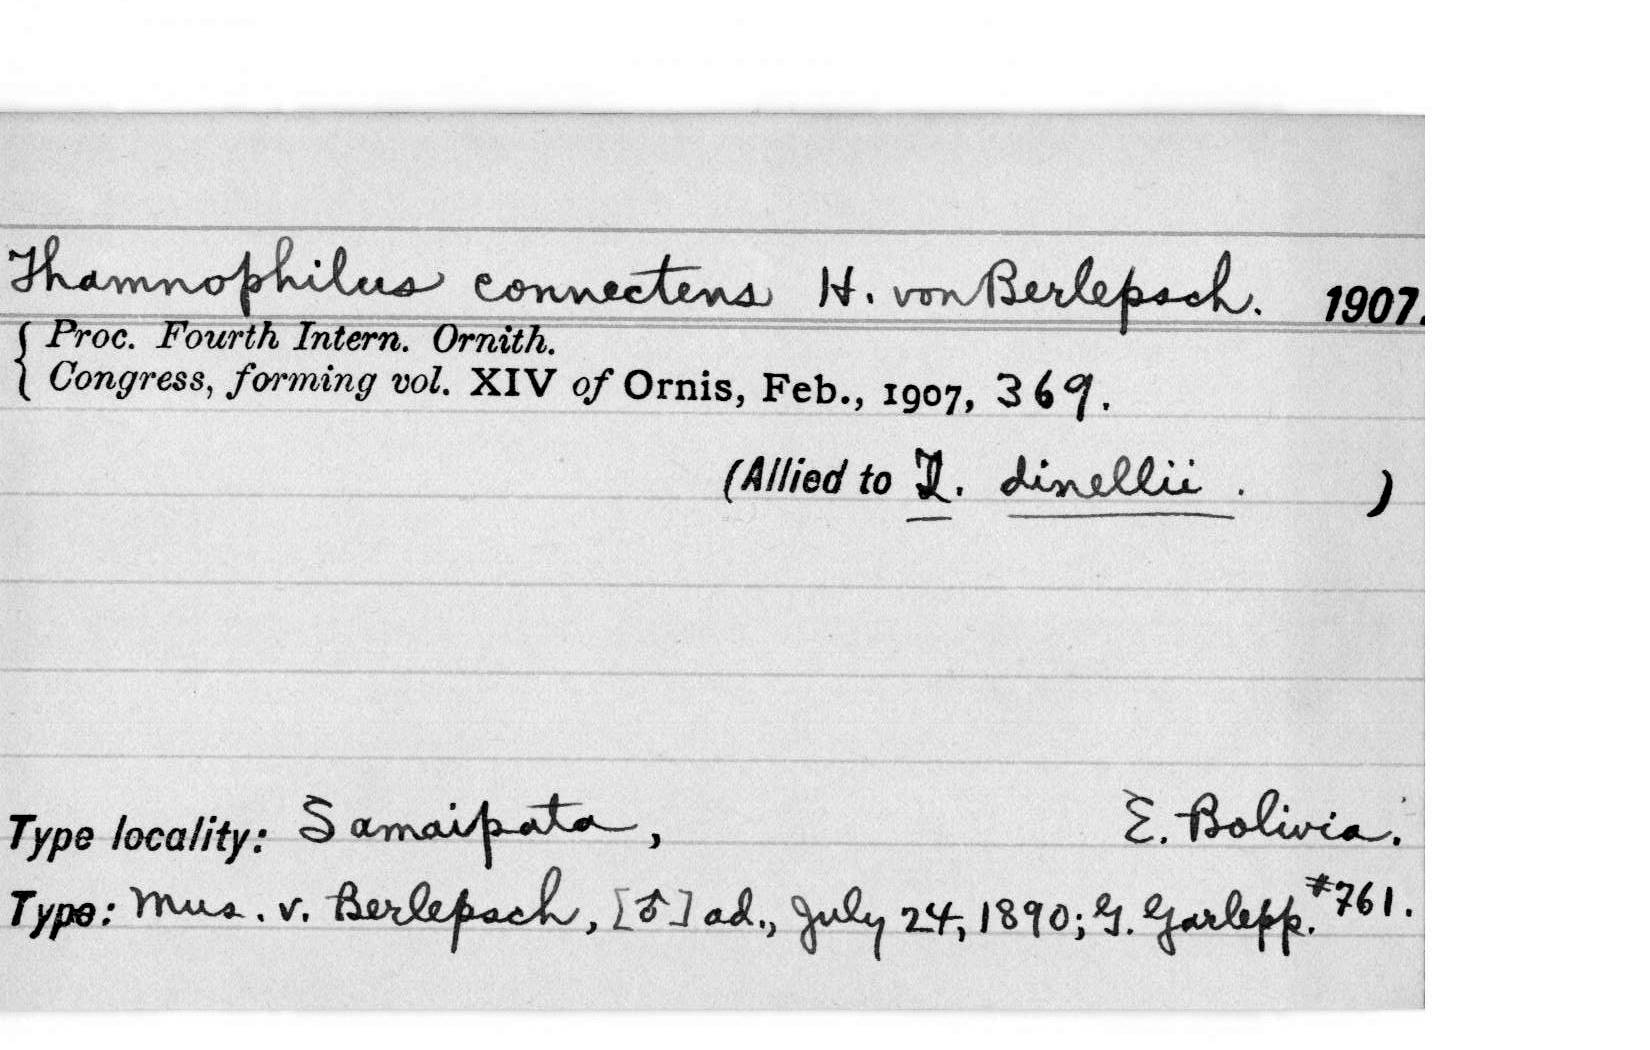 Thamnophilus connectens H. von Berlepsch. 1907.
{ Proc. Fourth Intern. Ornith.
Congress, forming vol. XIV of Ornis, Feb., 1907, 369.
(Allied to T. dinellii. )
Type locality: Samaipata, E. Bolivia.
Type: Mus. v. Berlepsch, [♂] ad., July 24, 1890; G. Garlepp. #761.